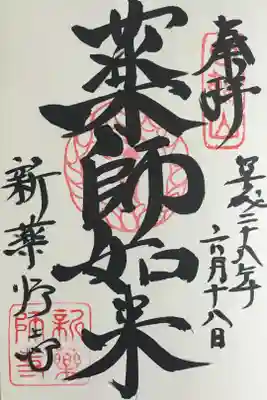 奉拝
平成二十八年
六月十八日
薬師如来
新薬師寺
新薬
師寺